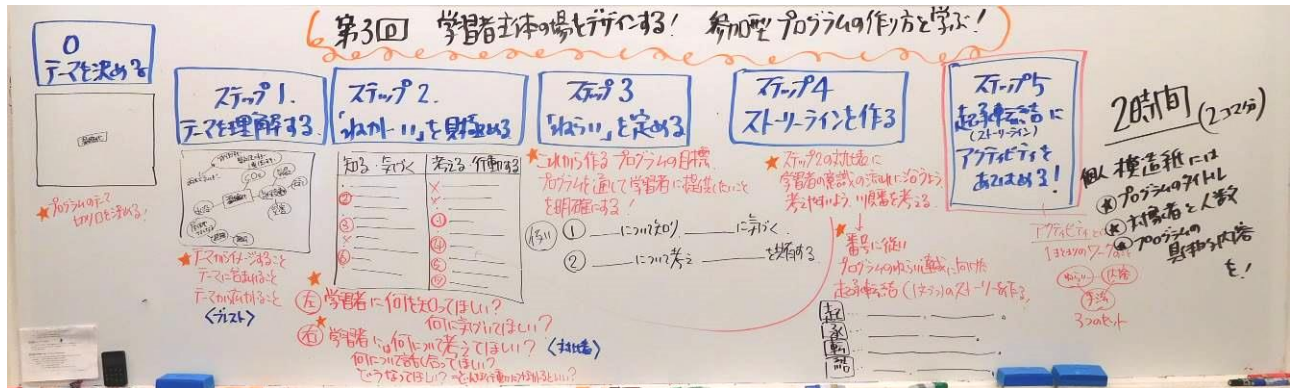 第3回 学習者主体の場をデザインする! 参加型プログラムの作り方を学ぶ!
0
テーマを決める
★プログラムの
切り口を決める!
ステップ1.
テーマを理解する.
CO₂
★テーマからイメージすること
テーマに
テーマから
〈ブレスト〉
ステップ2.
「ねがーい」を見極める
知る・気づく
考える 行動する
★左 学習者に何を知ってほしい?
何に気づいてほしい?
★右 学習者には何について考えてほしい?
何について話し合ってほしい?
どうなってほしい?
ステップ3
「ねらい」を定める
★これから作るプログラムの目標.
プログラムを通して学習者に提供したいこと
を明確にする!
① ___について知り ___に気づく.
② ___について考え ___を共有する
ステップ4
ストーリーラインを作る
★ステップ2の
学習者の意識の流れに沿うよう
順番を考える.
★番号に従い
プログラムのねらい達成に向けた
起承転結(1文ずつ)のストーリーを作る.
起
承
転
結
ステップ5
起承転結に
(ストーリーライン)
アクティビティを
あてはめる!
アクティビティとは
ねらい
内容
手法
3つのセット
2時間(2コマ分)
個人 模造紙には
★プログラムのタイトル
★対象者と人数
★プログラムの
具体的内容
を!